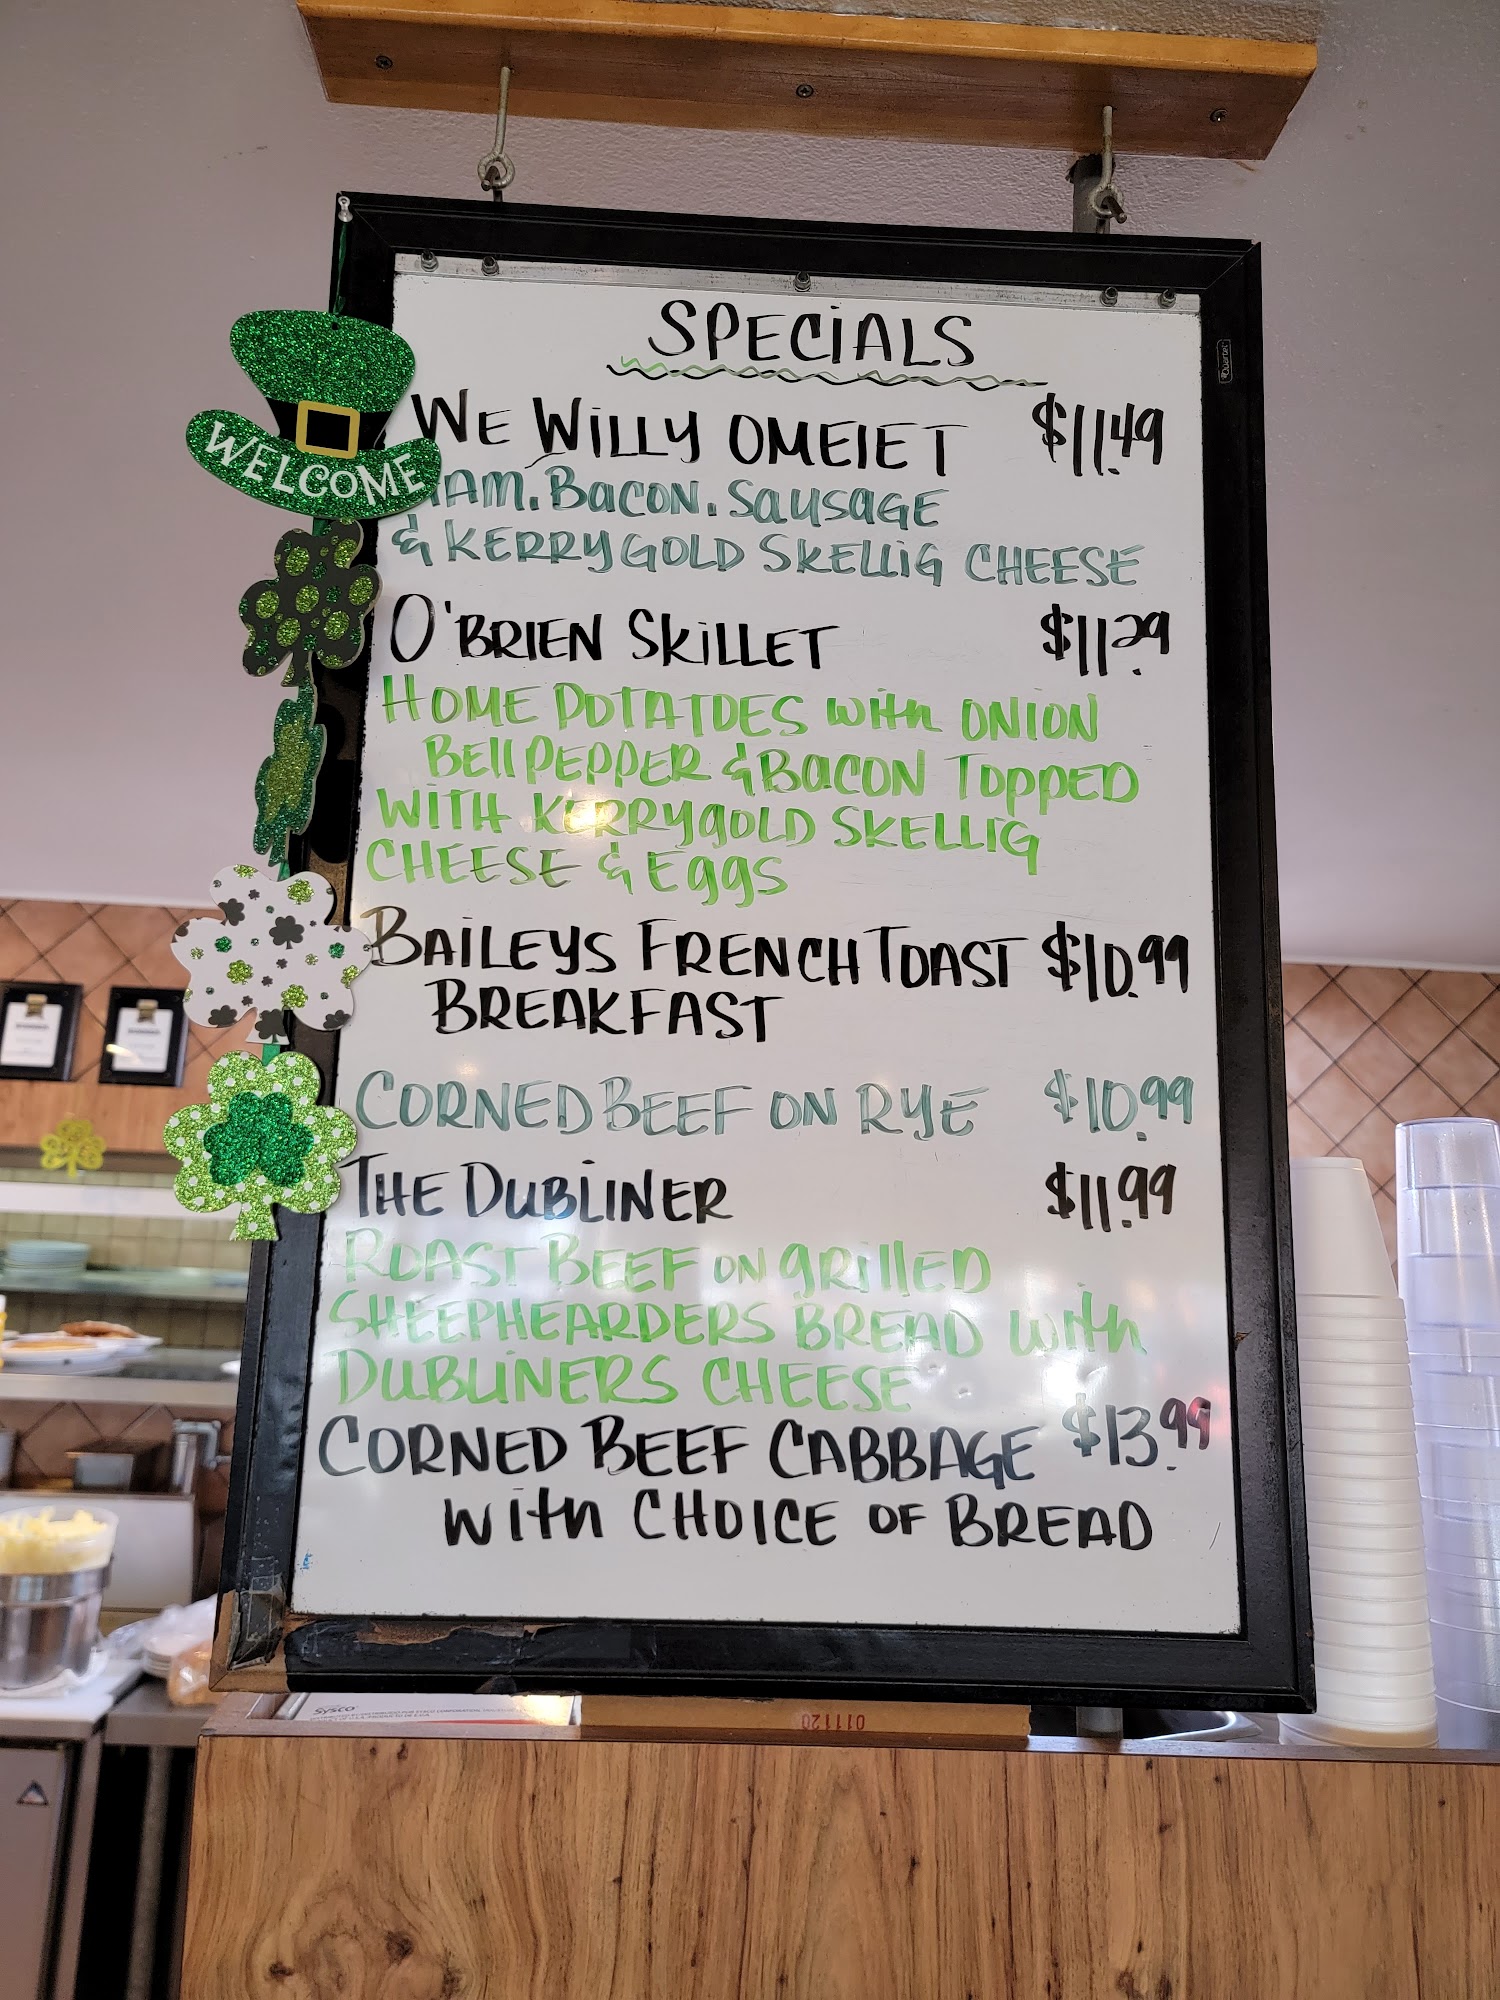 SPECiALS
WE WiLLY OMElET $11.49
WELCOME
HAM. BaCON. SaUSAGE
& KERRYGOLD SKELLiG CHEESE
O'BRIEN SKiLLET $11.29
HOME POTATOES With ONION
BEll PEPPER & BACON TOPPED
WITH KERRYGOLD SKELLIG
CHEESE & EggS
BAiLEYS FRENCH TOAST $10.99
BREAKFAST
CORNED BEEF ON RYE $10.99
THE DUBLiNER $11.99
ROAST BEEF ON gRillED
SHEEPHEARDERS BREAD with
DUBLiNERS CHEESE
CORNED BEEF CABBAGE $13.99
With CHOICE OF BREAD
Quartet
Sysco
011120